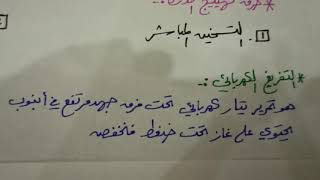 * طرق تهييج الذرات :-
1. التسخين المباشر
* التفريغ الكهربائي :-
هو تمرير تيار كهربائي تحت فرق جهد مرتفع في أنبوب
يحتوي على غاز تحت ضغط منخفض